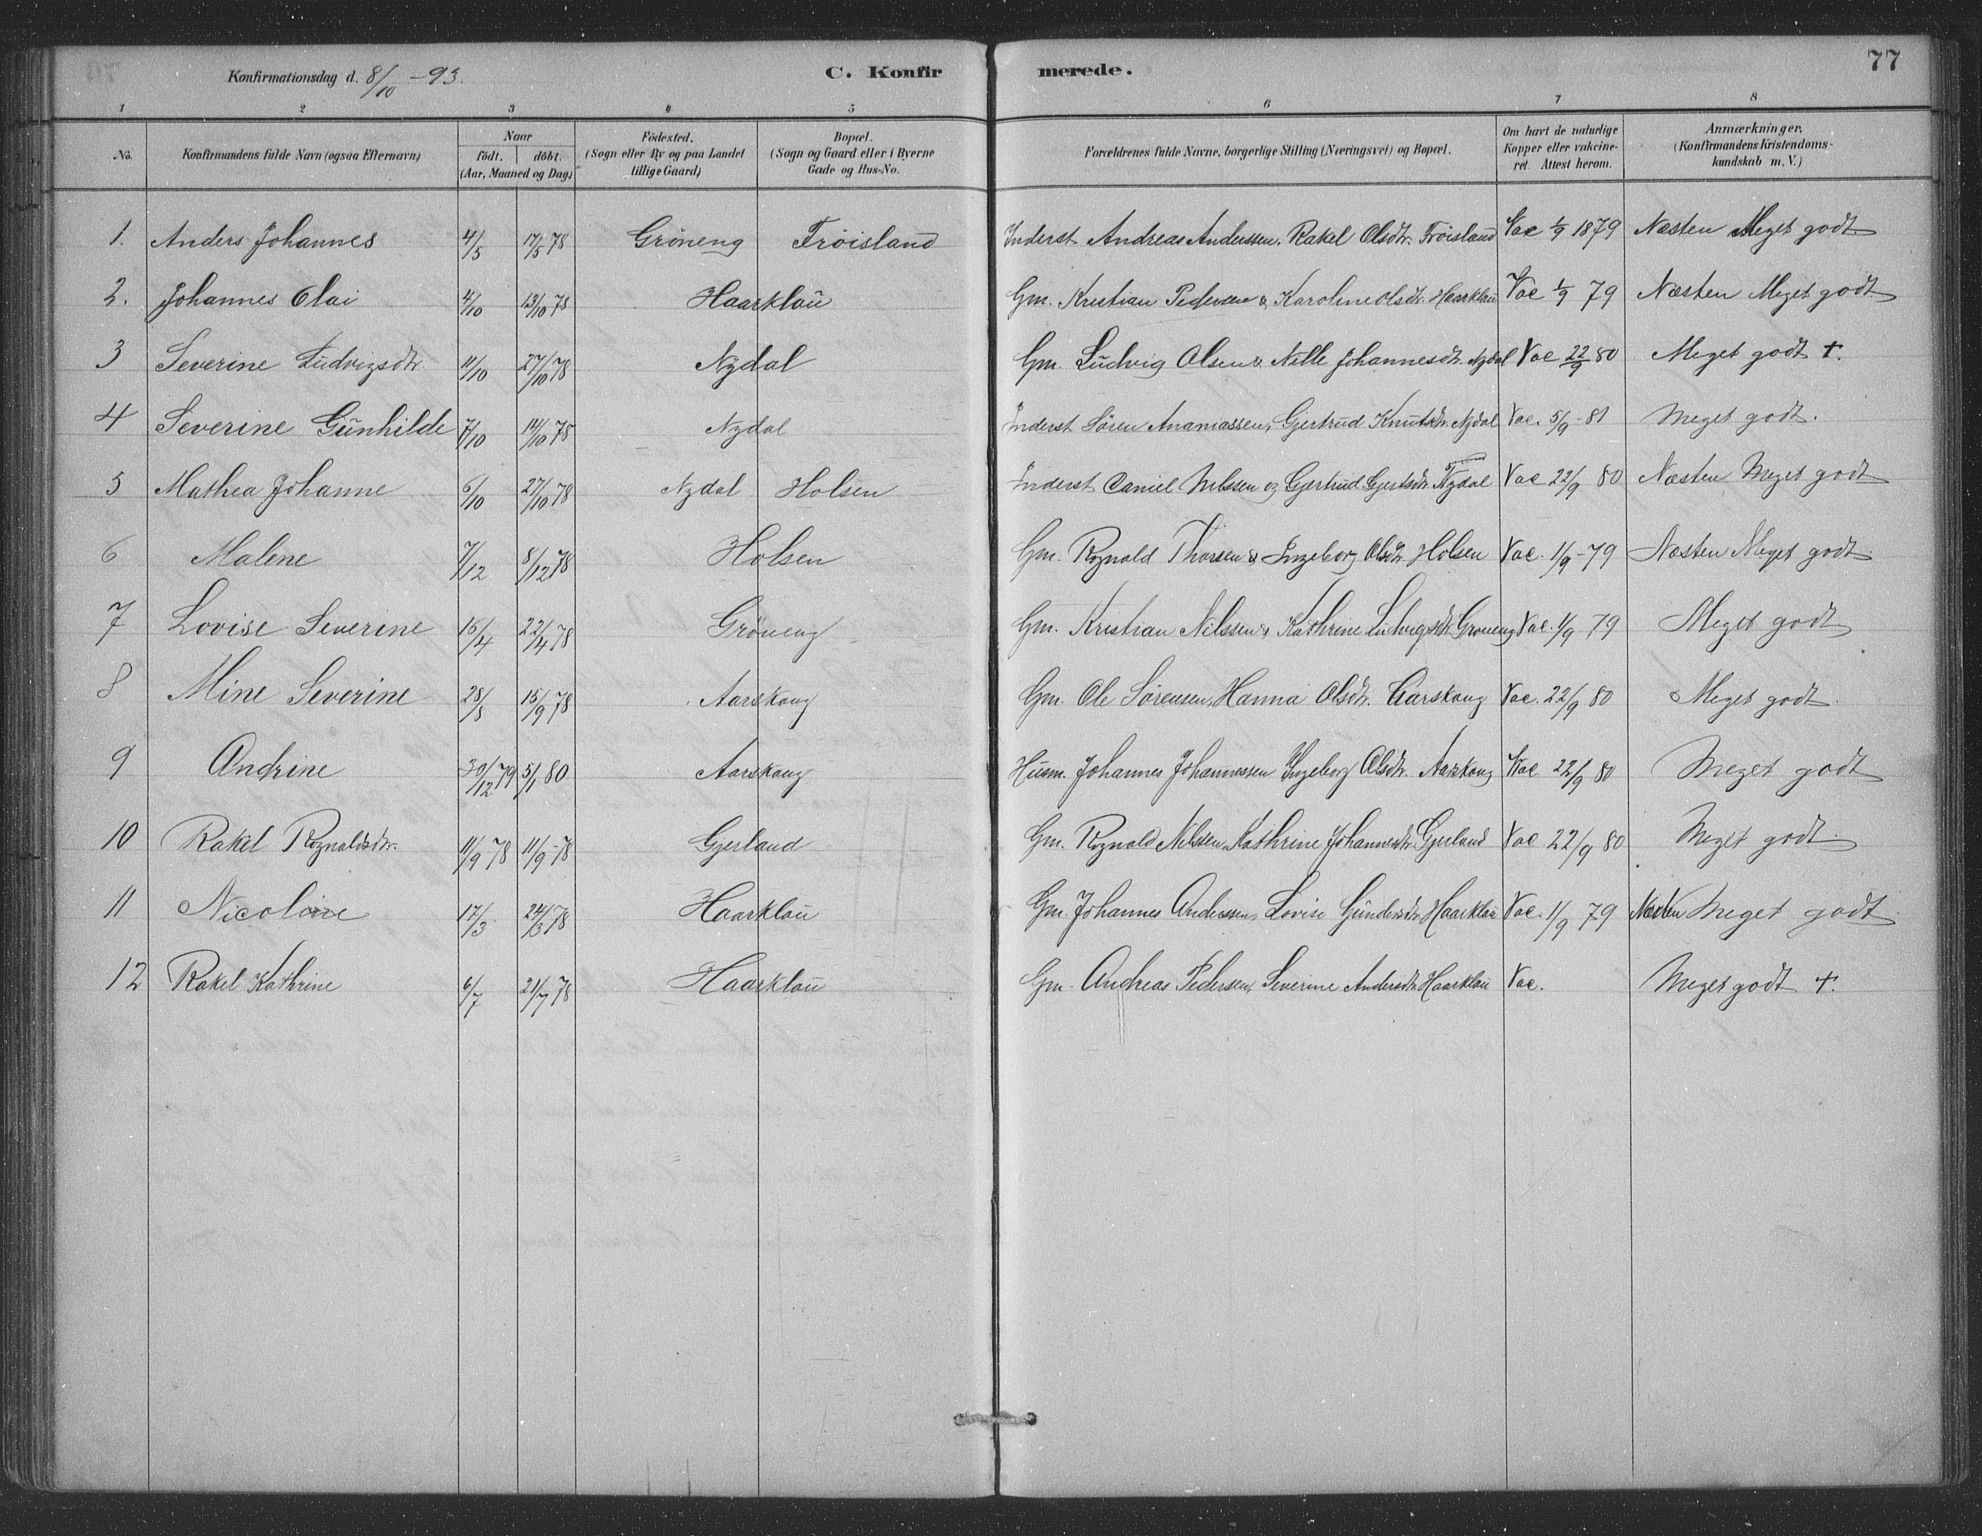 Konfirmationsdag d. 8/10 -93. C. Konfirmerede. 77
1 2 3 4 5 6 7 8
No. Konfirmandens fulde Navn (ogsaa Efternavn) Naar födt. döbt. (Aar, Maaned og Dag) Födested. (Sogn eller By og paa Landet tillige Gaard) Bopæl. (Sogn og Gaard eller i Byerne Gade og Hus-No. Forældrenes fulde Navne, borgerlige Stilling (Næringsvei) og Bopæl. Om havt de naturlige Kopper eller vakcineret. Attest herom. Anmærkninger. (Konfirmandens Kristendomskundskab m. V.)
1. Anders Johannes 4/5 17/5 78 Gröneng Fröisland Inderst Andreas Anderssen, Rakel Olsdtr. Fröisland Vac 1/9 1879 Næsten Meget godt.
2. Johannes Olai 4/10 13/10 78 Haarklau Gm. Kristian Pedersen & Karoline Olsdtr. Haarklau Vac 1/9 79 Næsten Meget godt
3 Severine Ludvigsdtr 11/10 27/10 78 Nydal Gm. Ludvig Olsen & Nille Johannesdtr. Nydal Vac 22/9 80 Meget godt +.
4 Severine Gunhilde 7/10 14/10 78 Nydal Inderst Sören Ananiassen, Gjertrud Knutsdtr. Nydal Vac. 5/9 - 81 Meget godt.
5 Mathea Johanne 6/10 27/10 78 Nydal Holsen Inderst Daniel Nilssen og Gjertrud Gjertsdtr Nydal Vac 22/9 80 Næsten Meget godt
6 Malene 7/12 8/12 78 Holsen Gm. Rognald Thorsen & Ingeborg Olsdtr. Holsen Vac. 1/9 - 79 Næsten Meget godt.
7 Lovise Severine 15/4 22/4 78 Gröneng Gm. Kristian Nilssen & Kathrine Ludvigsdtr. Gröneng Vac. 1/9 79 Meget godt
8 Mine Severine 28/8 15/9 78 Aarskoug Gm. Ole Sörensen, Hanna Olsdtr. Aarskoug Vac. 22/9 80 Meget godt.
9 Andrine 30/12 79 5/1 80 Aarskoug Husm. Johannes Johannessen Ingeborg Olsdtr. Aarskoug Vac 22/9 80 Meget godt
10 Rakel Rognaldsdtr. 11/9 78 11/9 - 78 Gjerland Gm. Rognald Nilssen, Kathrine Johannesdtr. Gjerland Vac 22/9 80 Meget godt.
11 Nicoline 17/3 24/3 78 Haarklau Gm. Johannes Anderssen, Lovise Gundersdtr. Haarklau Vac. 1/9 79 Næsten Meget godt
12 Rakel Kathrine 6/7 21/7 78 Haarklau Gm. Andreas Pedersen, Severine Andersdtr. Haarklau Vac. Meget godt +.